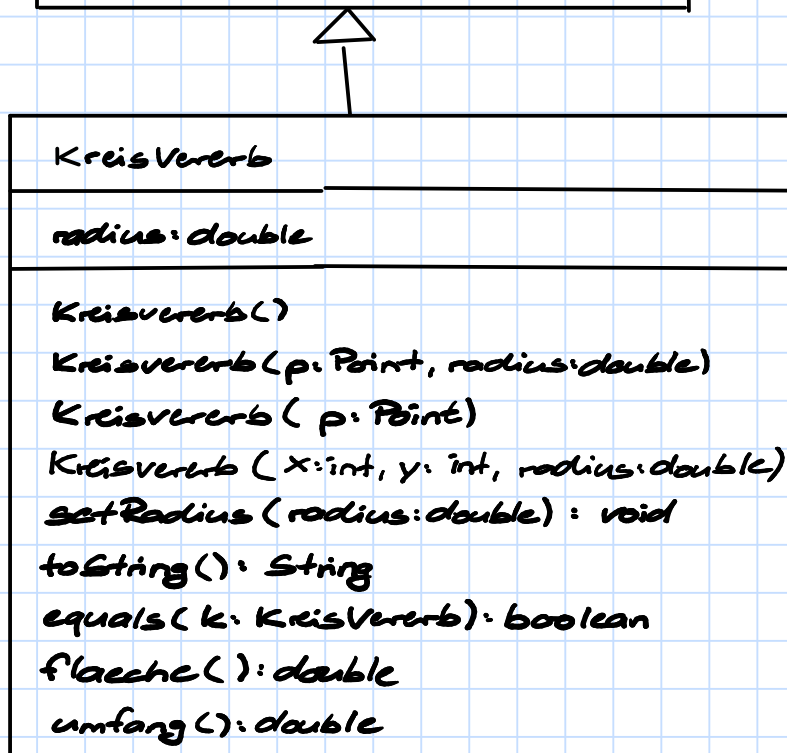 KreisVererb
radius: double
Kreisvererb()
Kreisvererb(p: Point, radius:double)
Kreisvererb( p: Point)
Kreisvererb (x:int, y: int, radius:double)
setRadius (radius:double) : void
toString(): String
equals( k: KreisVererb): boolean
flaeche(): double
umfang (): double